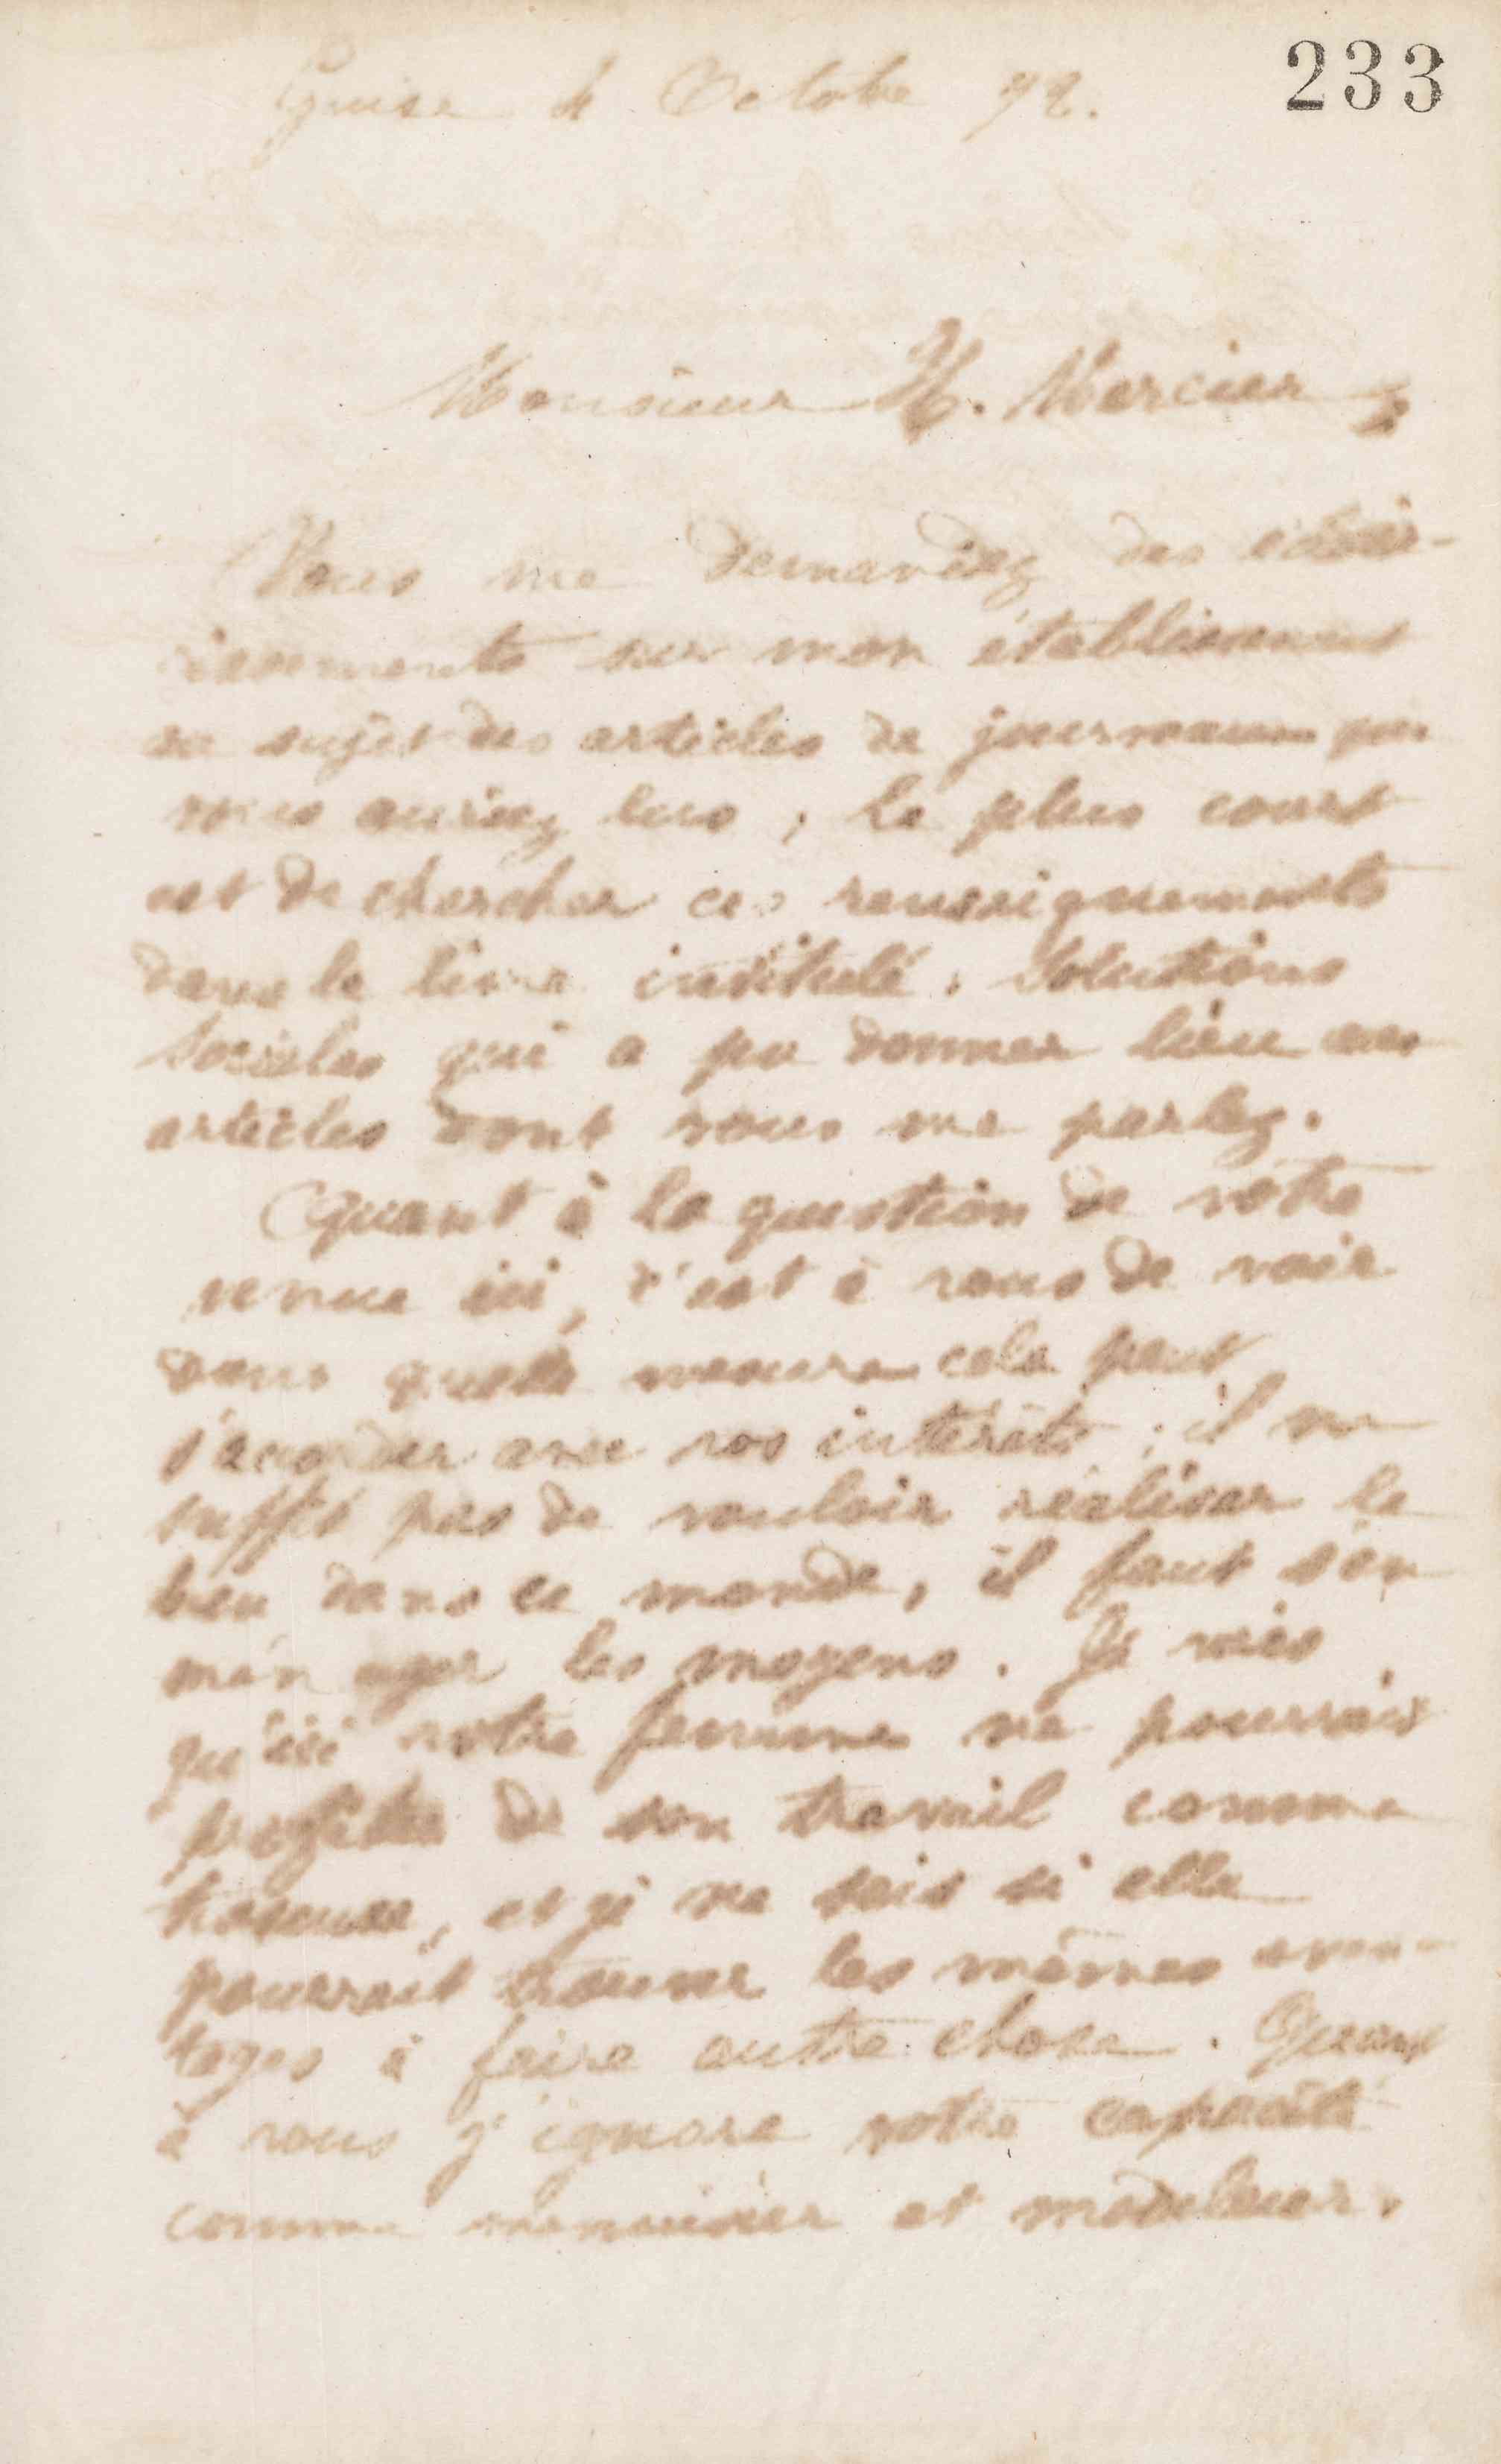 233
Guise 4 Octobre 72.
Monsieur H. Mercier
Vous me demandez des éclair-
cissements sur mon établissement
au sujet des articles de journaux que
vous auriez lus ; le plus court
est de chercher ces renseignements
dans le livre intitulé : Solutions
Sociales qui a pu donner lieu aux
articles dont vous me parlez.
Quant à la question de votre
venue ici, c'est à vous de voir
dans quelle mesure cela peut
s'accorder avec vos intérêts ; il ne
suffit pas de vouloir réaliser le
bien dans ce monde, il faut s'en
ménager les moyens. Je vois
qu'ici votre femme ne pourrait
profiter de son travail comme
et je ne sais si elle
pourrait trouver les mêmes avan-
tages à faire autre chose. Quant
à vous j'ignore votre capacité
comme menuisier et modeleur.